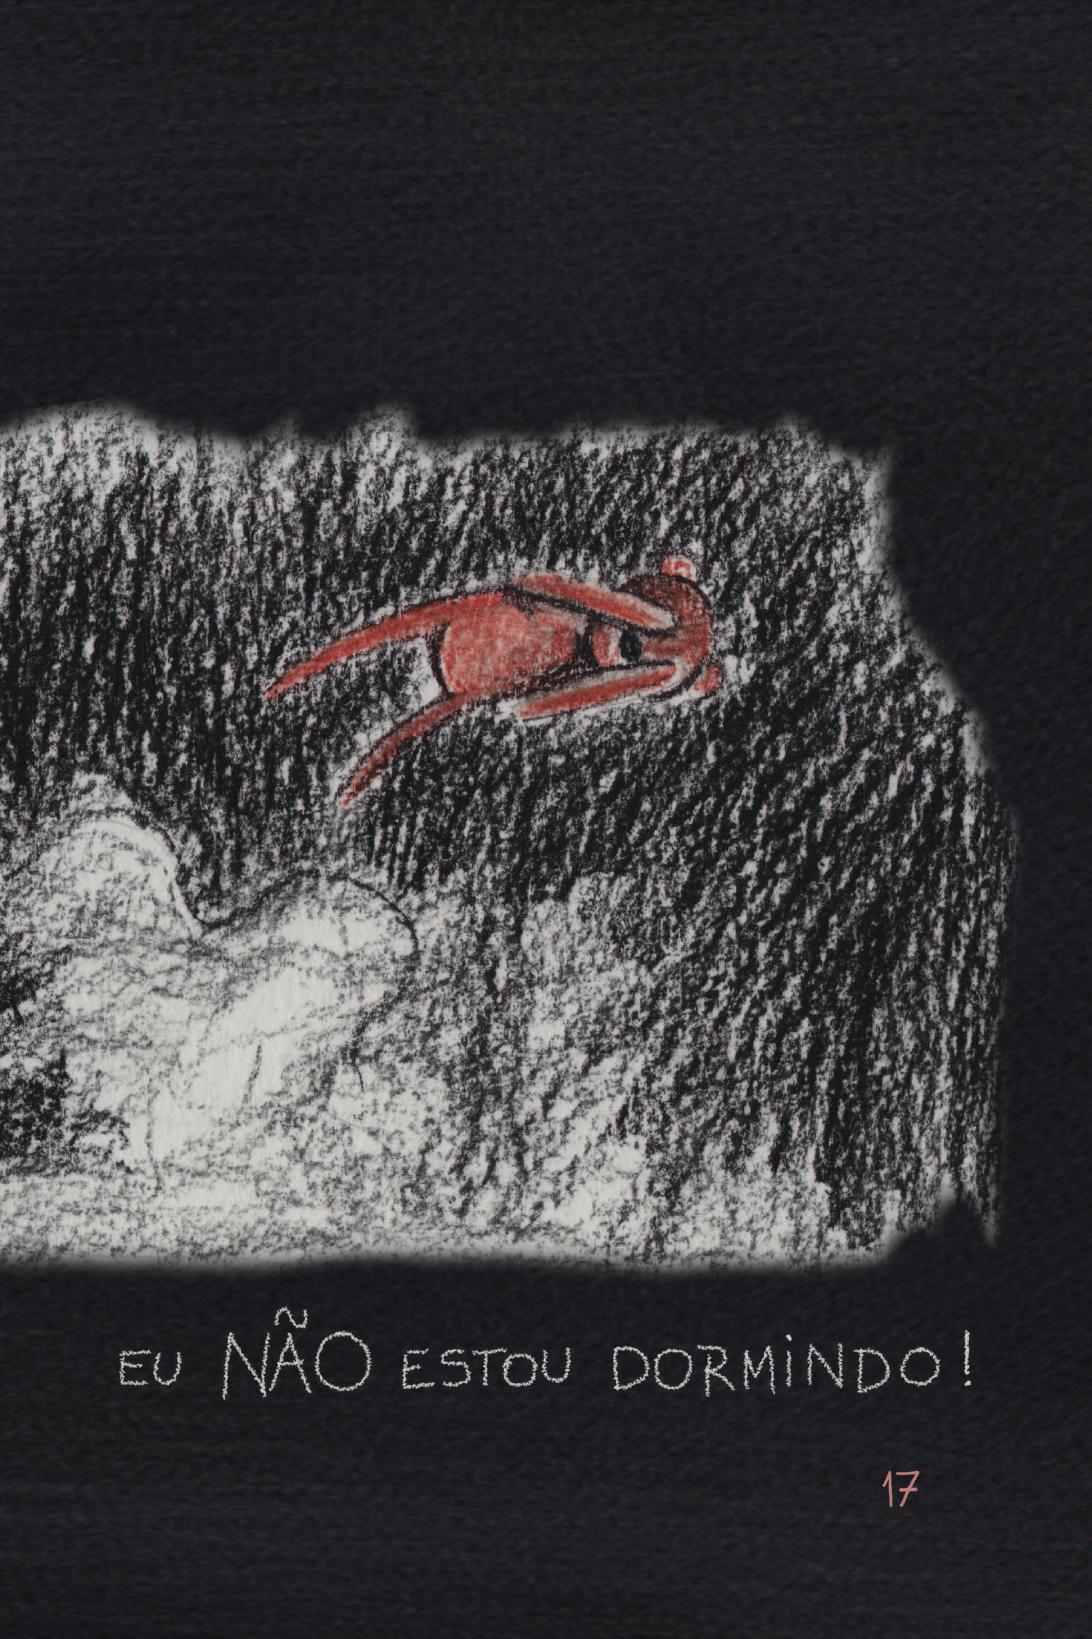 EU NÃO ESTOU DORMINDO!
17